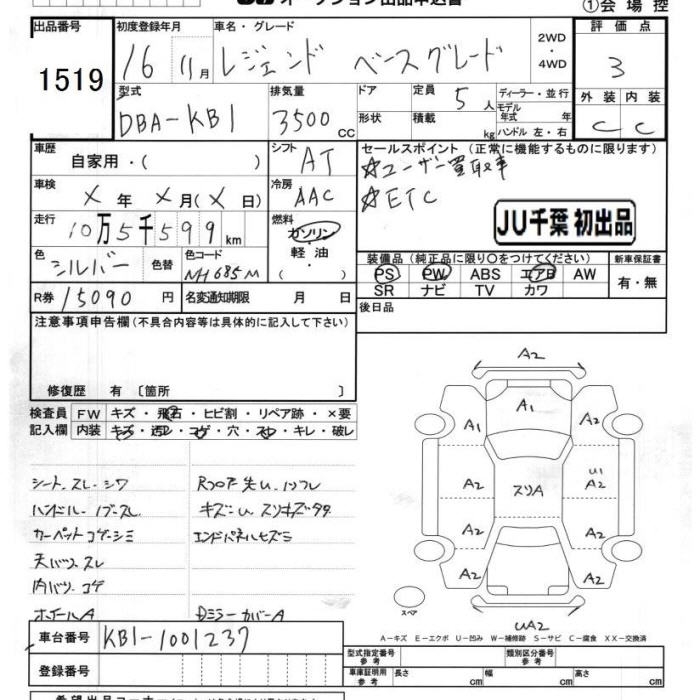 ①会場控
出品番号
初度登録年月
車名・グレード
2WD
・
4WD
評価点
1519
16 11月
レジェンド ベースグレード
3
型式
排気量
ドア
定員
ディーラー・並行
外装 内装
DBA-KB1
3500 CC
5人
モデル年式 年
形状
積載 kg
ハンドル 左・右
C C
車歴
自家用・( )
シフト
AT
セールスポイント (正常に機能するものに限ります)
☆ユーザー買取車
車検
X年 X月(X)日
冷房
AAC
☆ETC
走行
10万5千599km
燃料
ガソリン
・
軽油
・
( )
JU千葉 初出品
色
シルバー
色替
色コード
NH685M
装備品 (純正品に限り○をつけてください)
新車保証書
PS PW ABS エアB AW
有・無
SR ナビ TV カワ
R券
15090円
名変通知期限 月 日
後日品
注意事項申告欄(不具合内容等は具体的に記入して下さい)
修復歴 有〔箇所 〕
検査員
記入欄
FW キズ・飛石・ヒビ割・リペア跡・×要
内装 キズ・コゲ・穴・スレ・キレ・破レ
シート、スレ・シワ
ハンドル・ノブスレ
カーペットコゲ・シミ
天バリ、スレ
内バリ、コゲ
ホイールA
Rフロア
エンドパネルヒズミ
DミラーカバーA
A2
A1
A2 A2
A2 スリA U1 A2
A2 A2
A2 A2
A2
UA2
スペア
A-キズ E-エクボ U-凹み W-補修跡 S-サビ C-腐食 XX-交換済
車台番号
KB1-1001237
登録番号
型式指定番号
参考
類別区分番号
参考
車庫証明用
参考
長さ cm
幅 cm
高さ cm